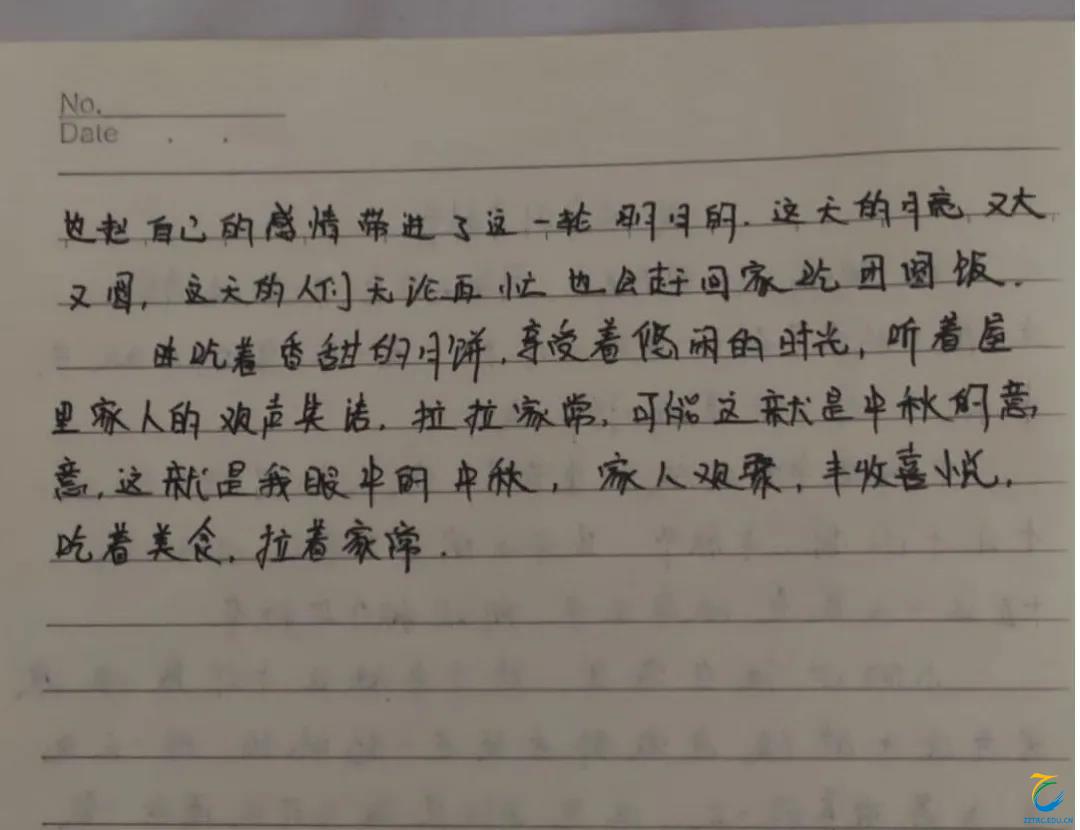 No.
Date
也把自己的感情带进了这一轮明月的.这天的月亮又大
又圆,这天的人们无论再忙也会赶回家吃团圆饭.
吃着香甜的月饼,享受着悠闲的时光,听着屋
里家人的欢声笑语,拉拉家常,可能这就是中秋的意
意,这就是我眼中的中秋,家人欢聚,丰收喜悦,
吃着美食,拉着家常.
ZZTRC.EDU.CN